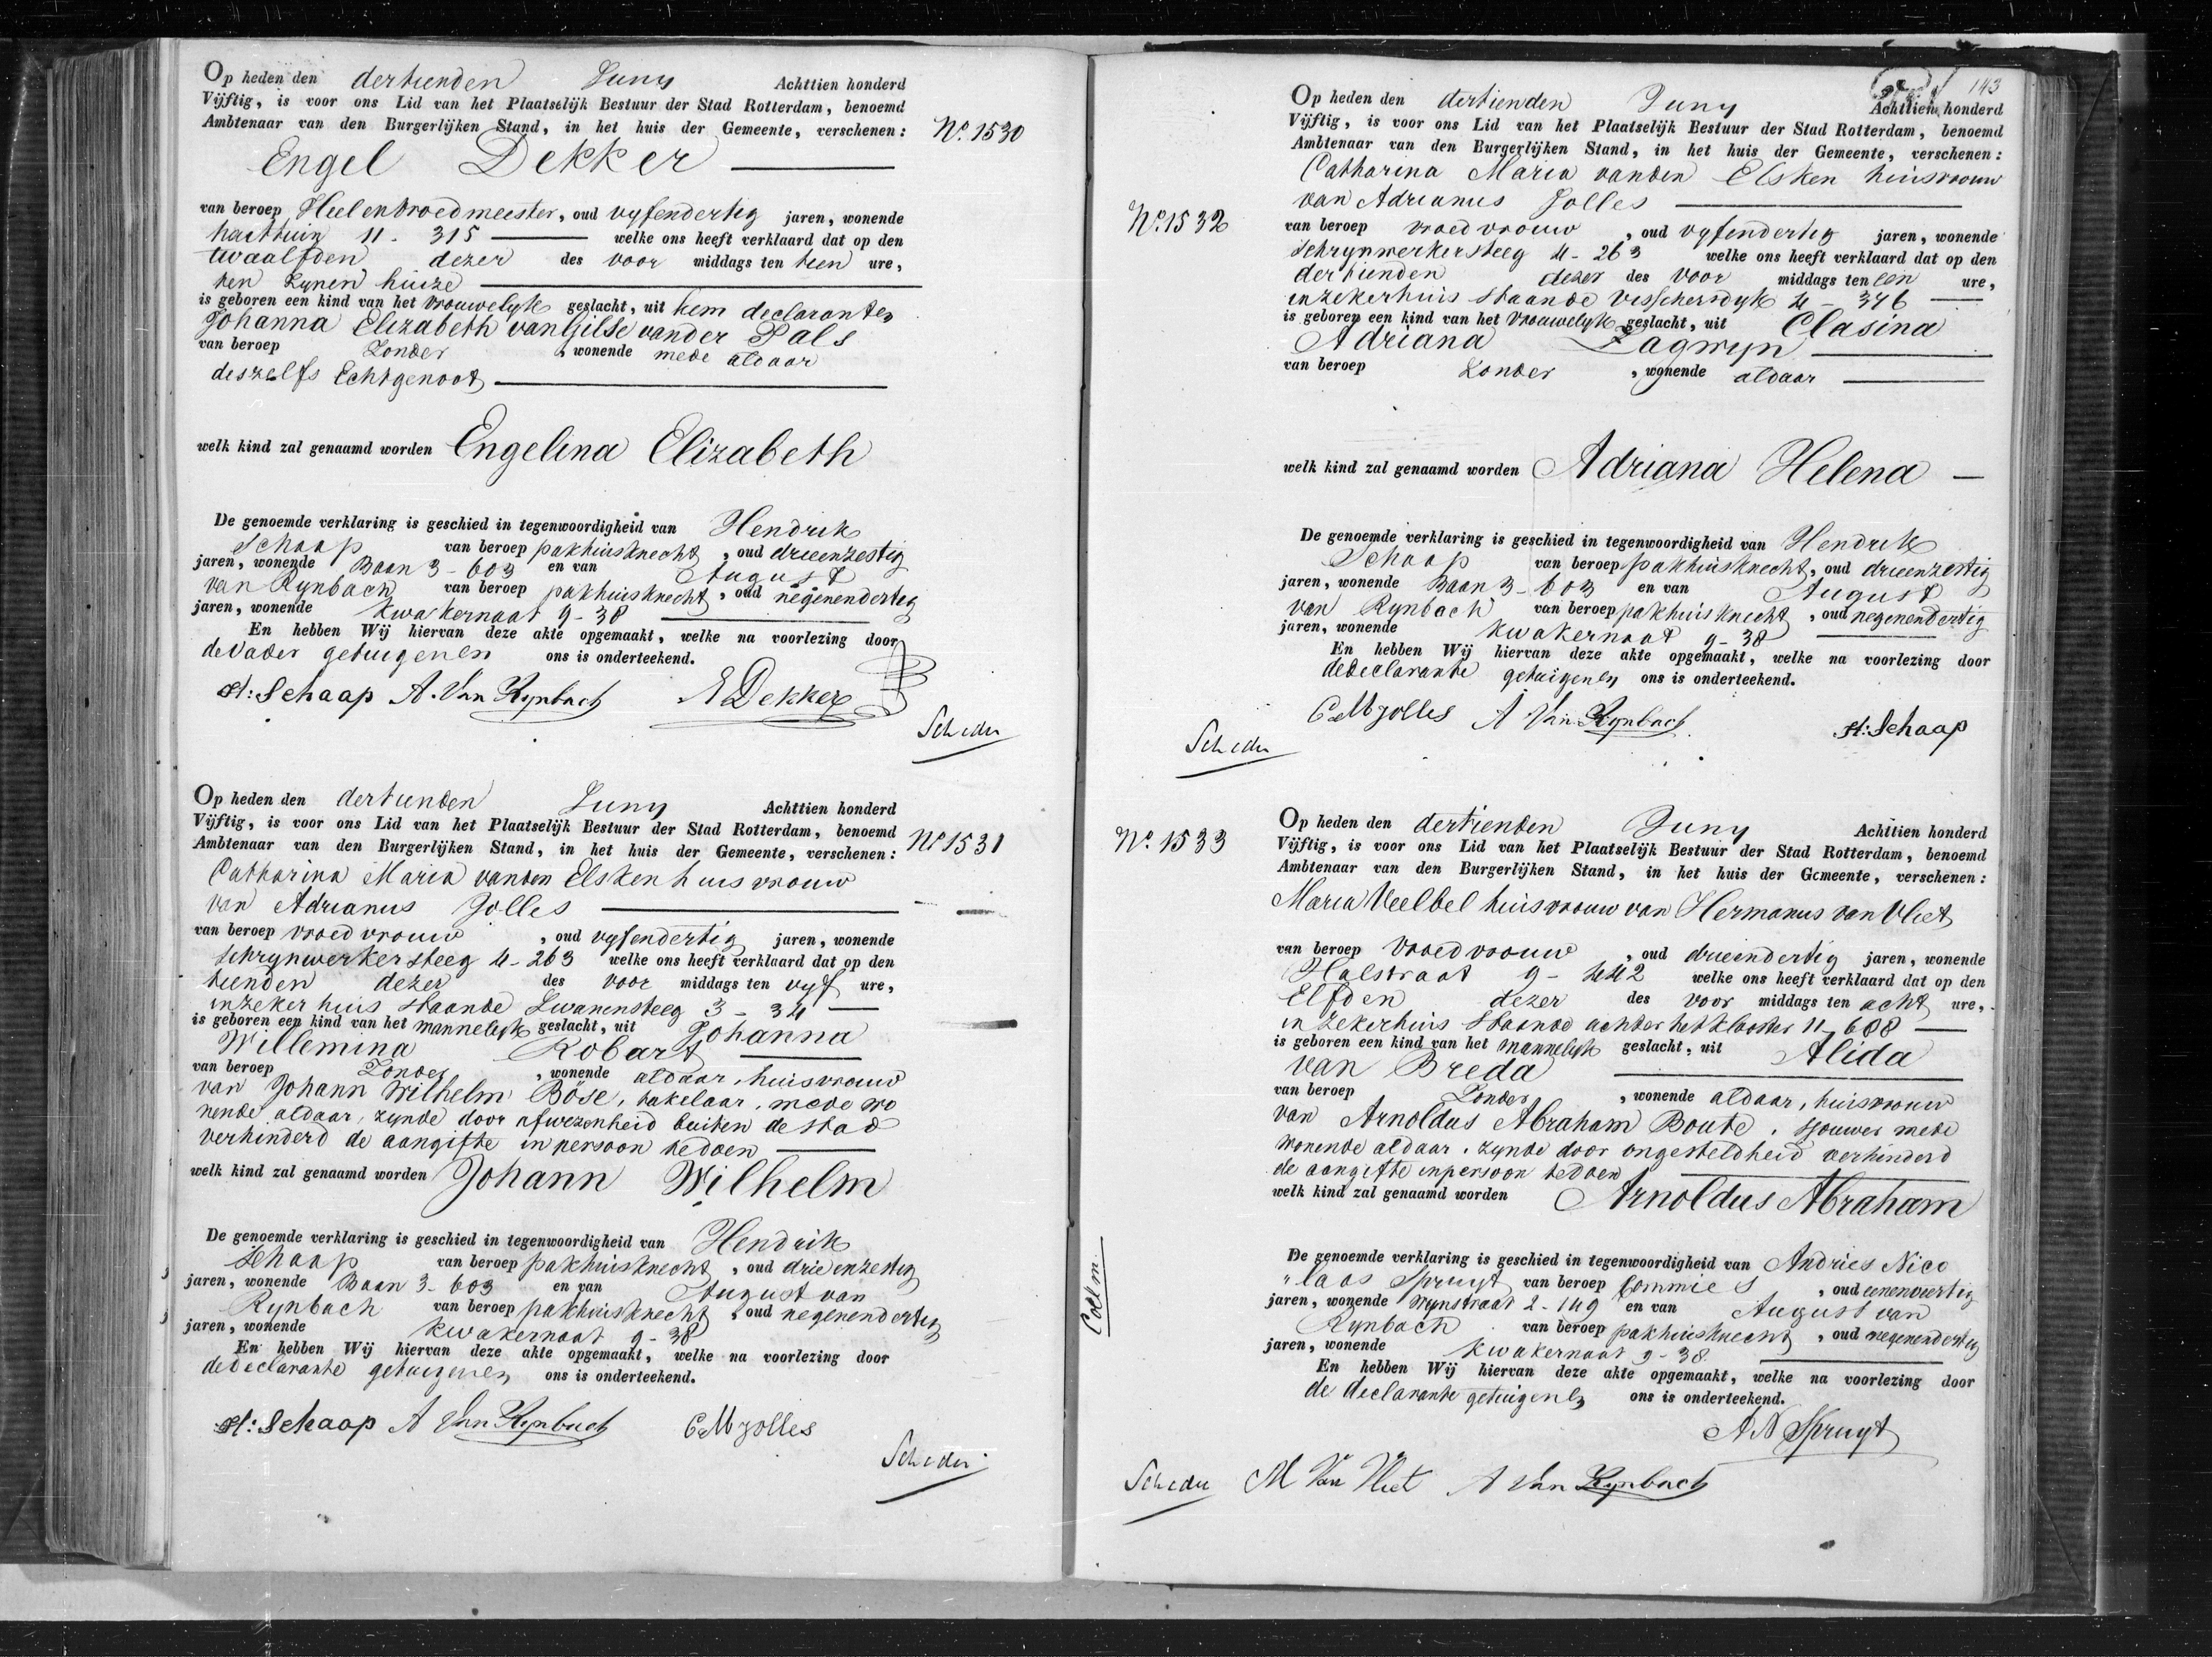 Op heden den dertienden Juny Achttien honderd
Vijftig, is voor ons Lid van het Plaatselijk Bestuur der Stad Rotterdam, benoemd
Ambtenaar van den Burgerlijken Stand, in het huis der Gemeente, verschenen:
No. 1530
Engel Dekker
van beroep Heelenvroedmeester, oud vyfendertig jaren, wonende
houttuin 11- 315 welke ons heeft verklaard dat op den
twaalfden dezer des voor middags ten tien ure,
ten zynen huize
is geboren een kind van het vrouwelyk geslacht, uit hem declarant en
Johanna Elizabeth van Gilse vander Pals
van beroep Zonder, wonende mede aldaar
deszelfs Echtgenoot
welk kind zal genaamd worden Engelina Elizabeth
De genoemde verklaring is geschied in tegenwoordigheid van Hendrik
Schaap van beroep pakhuisknecht, oud drieenzestig
jaren, wonende Baan 3-603 en van August
van Rynbach van beroep pakhuisknecht, oud negenendertig
jaren, wonende Kwakernaat 9-38
En hebben Wij hiervan deze akte opgemaakt, welke na voorlezing door
de Vader getuigen en ons is onderteekend.
H: Schaap A. Van Rynbach E Dekker
Op heden den dertienden Juny Achttien honderd
Vijftig, is voor ons Lid van het Plaatselijk Bestuur der Stad Rotterdam, benoemd
Ambtenaar van den Burgerlijken Stand, in het huis der Gemeente, verschenen:
No 1531
Catharina Maria vanden Elsken huisvrouw
van Adrianus Jolles
van beroep vroedvrouw, oud vyfendertig jaren, wonende
Schrynwerkersteeg 4-263 welke ons heeft verklaard dat op den
tienden dezer des voor middags ten vyf ure,
in zeker huis staande Zwanensteeg 3-34
is geboren een kind van het mannelyk geslacht, uit Johanna
Willemina Robart
van beroep Zonder, wonende aldaar, huisvrouw
van Johann Wilhelm Böse, takelaar, mede wo
nende aldaar, zynde door afwezenheid buiten de stad
verhinderd de aangifte in persoon te doen
welk kind zal genaamd worden Johann Wilhelm
De genoemde verklaring is geschied in tegenwoordigheid van Hendrik
Schaap van beroep pakhuisknecht, oud drieenzestig
jaren, wonende Baan 3-603 en van August van
Rynbach van beroep pakhuisknecht, oud negenendertig
jaren, wonende Kwakernaat 9-38
En hebben Wij hiervan deze akte opgemaakt, welke na voorlezing door
de declarante getuigen en ons is onderteekend.
H: Schaap A Van Rynbach C M Jolles
143
Op heden den dertienden Juny Achttien honderd
Vijftig, is voor ons Lid van het Plaatselijk Bestuur der Stad Rotterdam, benoemd
Ambtenaar van den Burgerlijken Stand, in het huis der Gemeente, verschenen:
Catharina Maria vanden Elsken huisvrouw
van Adrianus Jolles
No. 1532
van beroep vroedvrouw, oud vyfendertig jaren, wonende
Schrynwerkersteeg 4-263 welke ons heeft verklaard dat op den
dertienden dezer des voor middags ten een ure,
in zeker huis staande visschersdyk 4-376
is geboren een kind van het vrouwelyk geslacht, uit Clasina
Adriana Zagwyn
van beroep Zonder, wonende aldaar
welk kind zal genaamd worden Adriana Helena
De genoemde verklaring is geschied in tegenwoordigheid van Hendrik
Schaap van beroep pakhuisknecht, oud drieenzestig
jaren, wonende Baan 3-603 en van August
van Rynbach van beroep pakhuisknecht, oud negenendertig
jaren, wonende Kwakernaat 9-38
En hebben Wij hiervan deze akte opgemaakt, welke na voorlezing door
de declarante getuigen en ons is onderteekend.
C M Jolles A Van Rynbach H: Schaap
Op heden den dertienden Juny Achttien honderd
No. 1533
Vijftig, is voor ons Lid van het Plaatselijk Bestuur der Stad Rotterdam, benoemd
Ambtenaar van den Burgerlijken Stand, in het huis der Gemeente, verschenen:
Maria Veelbel huisvrouw van Hermanus van Vliet
van beroep Vroedvrouw, oud drieendertig jaren, wonende
Halstraat 9-442 welke ons heeft verklaard dat op den
Elfden dezer des voor middags ten acht ure,
in zeker huis staande achter het klooster 11-608
is geboren een kind van het mannelyk geslacht, uit Alida
van Breda
van beroep Zonder, wonende aldaar, huisvrouw
van Arnoldus Abraham Boute, sjouwer mede
wonende aldaar, zynde door ongesteldheid verhinderd
de aangifte in persoon te doen
welk kind zal genaamd worden Arnoldus Abraham
De genoemde verklaring is geschied in tegenwoordigheid van Andries Nico
"laas Spruyt van beroep Commies, oud eenenveertig
jaren, wonende Wynstraat 2-149 en van August van
Rynbach van beroep pakhuisknecht, oud negenendertig
jaren, wonende Kwakernaat 9-38
En hebben Wij hiervan deze akte opgemaakt, welke na voorlezing door
de declarante getuigen en ons is onderteekend.
A N Spruyt
M Van Vliet A Van Rynbach